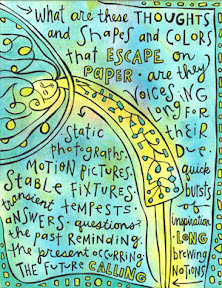 What are these THOUGHTS
and SHAPES and COLORS
that ESCAPE on
PAPER · are they
VOICES
LONG for
THEIR
DUE
· static
photographs ·
MOTION PICTURES ·
STABLE FIXTURES ·
transient TEMPESTS
ANSWERS · questions ·
the past REMINDING.
the present OCCURRING.
THE FUTURE CALLING
quick
bursts
of
inspiration
· LONG
brewing
NOTIONS